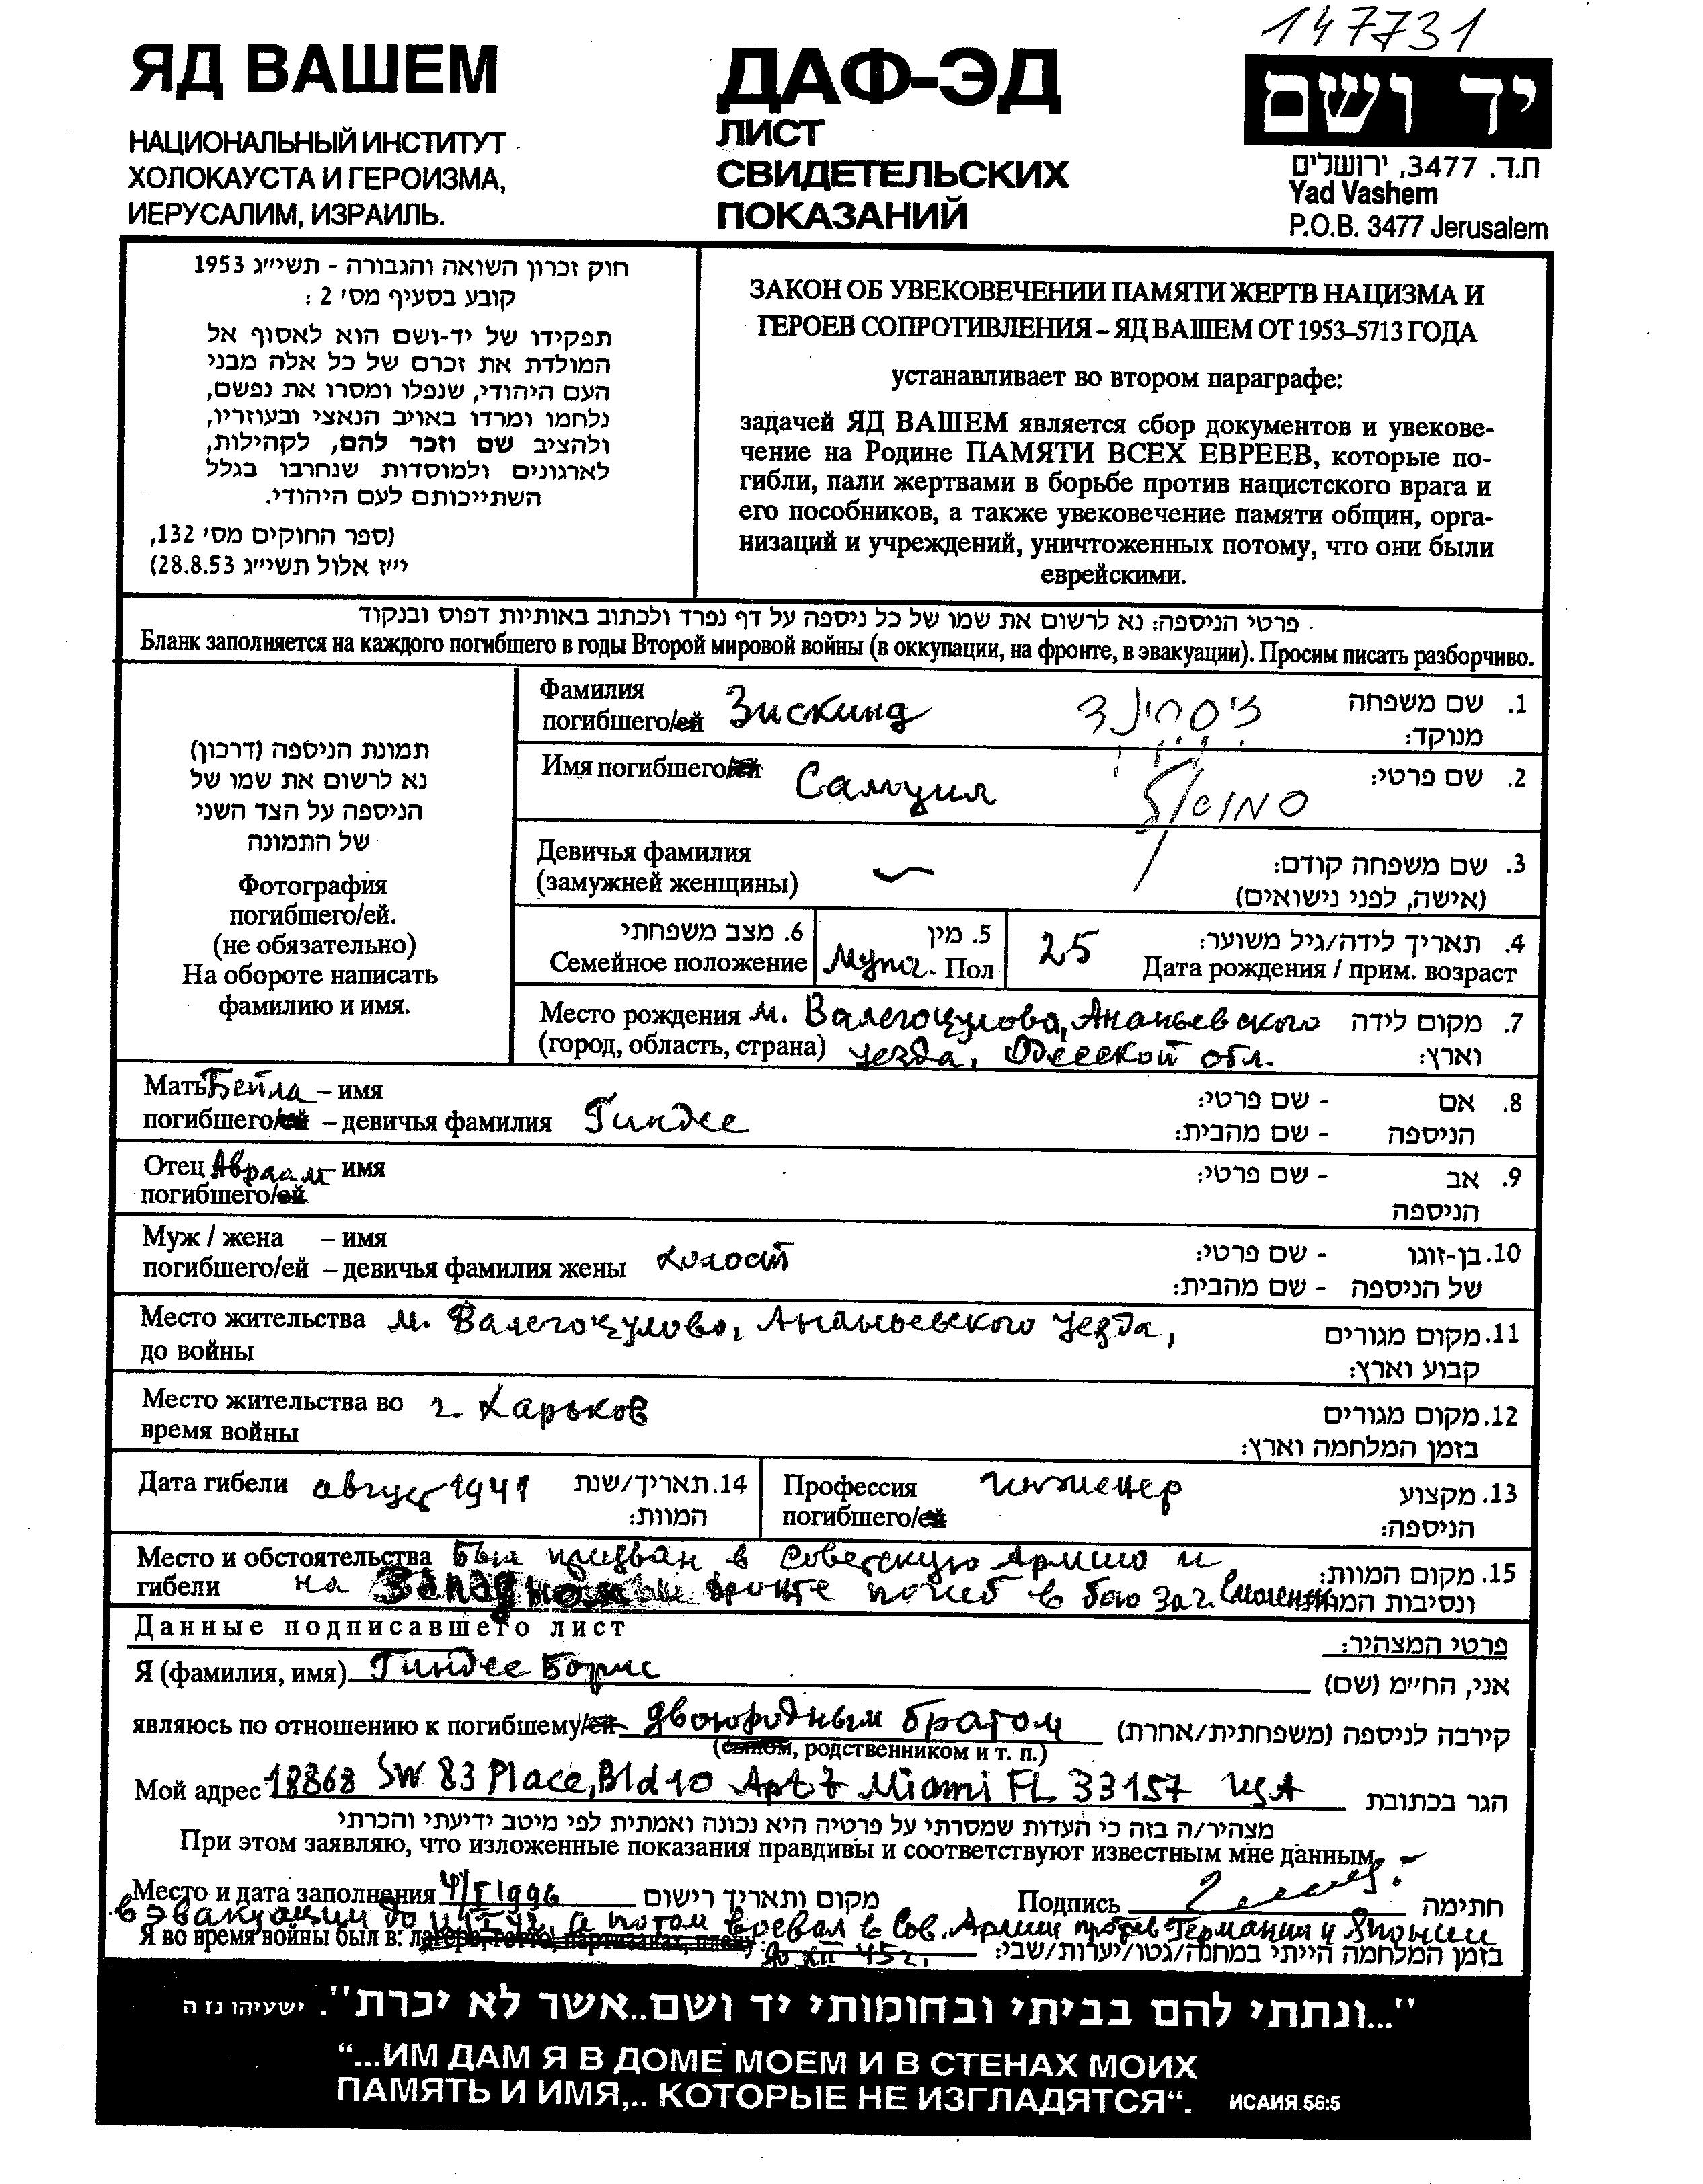 147731
ЯД ВАШЕМ
НАЦИОНАЛЬНЫЙ ИНСТИТУТ
ХОЛОКАУСТА И ГЕРОИЗМА,
ИЕРУСАЛИМ, ИЗРАИЛЬ.
ДАФ-ЭД
ЛИСТ
СВИДЕТЕЛЬСКИХ
ПОКАЗАНИЙ
יד ושם
ת.ד. 3477, ירושלים
Yad Vashem
P.O.B. 3477 Jerusalem
חוק זכרון השואה והגבורה - תשי״ג 1953
קובע בסעיף מס׳ 2 :
תפקידו של יד-ושם הוא לאסוף אל
המולדת את זכרם של כל אלה מבני
העם היהודי, שנפלו ומסרו את נפשם,
נלחמו ומרדו באויב הנאצי ובעוזריו,
ולהציב שם וזכר להם, לקהילות,
לארגונים ולמוסדות שנחרבו בגלל
השתייכותם לעם היהודי.
(ספר החוקים מס׳ 132,
י״ז אלול תשי״ג 28.8.53)
ЗАКОН ОБ УВЕКОВЕЧЕНИИ ПАМЯТИ ЖЕРТВ НАЦИЗМА И
ГЕРОЕВ СОПРОТИВЛЕНИЯ – ЯД ВАШЕМ ОТ 1953–5713 ГОДА
устанавливает во втором параграфе:
задачей ЯД ВАШЕМ является сбор документов и увекове-
чение на Родине ПАМЯТИ ВСЕХ ЕВРЕЕВ, которые по-
гибли, пали жертвами в борьбе против нацистского врага и
его пособников, а также увековечение памяти общин, орга-
низаций и учреждений, уничтоженных потому, что они были
еврейскими.
פרטי הניספה: נא לרשום את שמו של כל ניספה על דף נפרד ולכתוב באותיות דפוס ובנקוד
Бланк заполняется на каждого погибшего в годы Второй мировой войны (в оккупации, на фронте, в эвакуации). Просим писать разборчиво.
תמונת הניספה (דרכון)
נא לרשום את שמו של
הניספה על הצד השני
של התמונה
Фотография
погибшего/ей.
(не обязательно)
На обороте написать
фамилию и имя.
Фамилия
погибшего/ей Зискинд זיסקינד
1. שם משפחה
מנוקד:
Имя погибшего/ей Самуил סמואל
2. שם פרטי:
Девичья фамилия
(замужней женщины)
3. שם משפחה קודם:
(אישה, לפני נישואים)
6. מצב משפחתי
Семейное положение
5. מין
Мужч. Пол
25
4. תאריך לידה/גיל משוער:
Дата рождения / прим. возраст
Место рождения м. Валегоцулова, Ананьевского
(город, область, страна) уезда, Одесской обл.
7. מקום לידה
וארץ:
Мать Бейла – имя
погибшего/ей – девичья фамилия Гиндес
8. אם - שם פרטי:
הניספה - שם מהבית:
Отец Авраам имя
погибшего/ей
9. אב - שם פרטי:
הניספה
Муж / жена – имя
погибшего/ей – девичья фамилия жены холост
10. בן-זוגו - שם פרטי:
של הניספה - שם מהבית:
Место жительства м. Валегоцулово, Ананьевского уезда,
до войны
11. מקום מגורים
קבוע וארץ:
Место жительства во г. Харьков
время войны
12. מקום מגורים
בזמן המלחמה וארץ:
Дата гибели август 1941
14. תאריך/שנת
המוות:
Профессия инженер
погибшего/ей
13. מקצוע
הניספה:
Место и обстоятельства Был призван в Советскую Армию и
гибели на Западном фронте погиб в бою за г. Смоленск
15. מקום המוות:
ונסיבות המוות
Данные подписавшего лист
פרטי המצהיר:
Я (фамилия, имя) Гиндес Борис
אני, החי״מ (שם)
являюсь по отношению к погибшему/ей двоюродным братом
קירבה לניספה (משפחתית/אחרת)
(сыном, родственником и т. п.)
Мой адрес 18868 SW 83 Place, Bld 10 Apt 7 Miami FL 33157 USA
הגר בכתובת
מצהיר/ה בזה כי העדות שמסרתי על פרטיה היא נכונה ואמתית לפי מיטב ידיעתי והכרתי
При этом заявляю, что изложенные показания правдивы и соответствуют известным мне данным.
Место и дата заполнения 4/I 1996 מקום ותאריך רישום
Подпись חתימה
в эвакуации до, а потом воевал в Сов. Армии против Германии и Японии
Я во время войны был в: лагере, гетто, партизанах, плену до XII 45 г.
בזמן המלחמה הייתי במחנה/גטו/יערות/שבי:
"...ונתתי להם בביתי ובחומותי יד ושם..אשר לא יכרת". ישעיהו נז ה
“...ИМ ДАМ Я В ДОМЕ МОЕМ И В СТЕНАХ МОИХ
ПАМЯТЬ И ИМЯ,.. КОТОРЫЕ НЕ ИЗГЛАДЯТСЯ“. ИСАИЯ 56:5